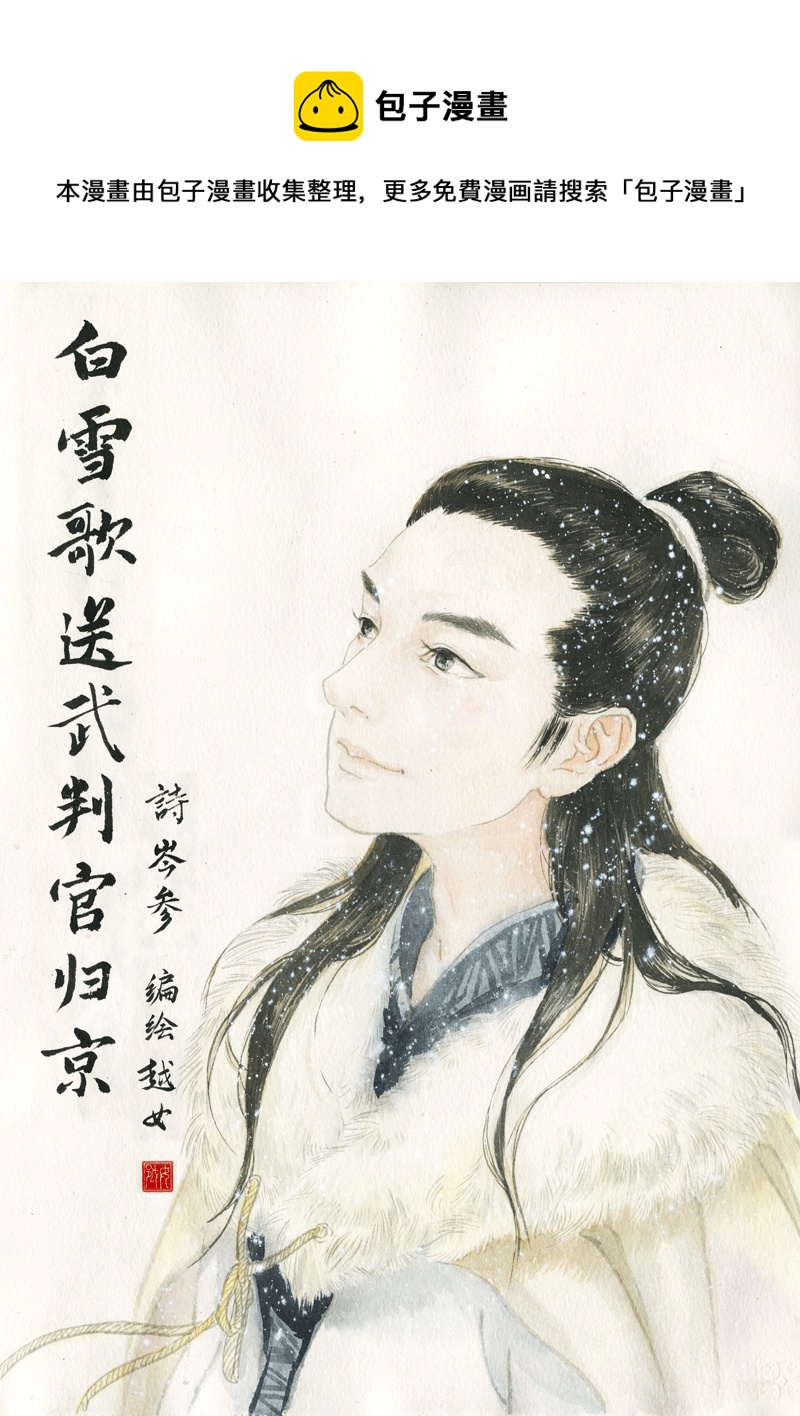 包子漫畫
本漫畫由包子漫畫收集整理，更多免費漫画請搜索「包子漫畫」
白雪歌送武判官归京
詩 岑参 编绘 越女